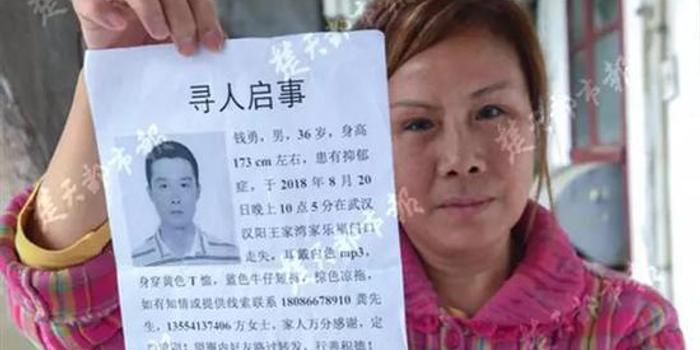 楚天都市报
寻人启事
钱勇，男，36岁，身高
173cm左右，患有抑郁
症，于2018年8月20
日晚上10点5分在武汉
汉阳王家湾家乐福门口
走失，耳戴白色mp3，
身穿黄色T恤，蓝色牛仔短裤，棕色凉拖，
如有知情或提供线索联系 18086678910 龚先
生，13554137406 方女士，家人万分感谢，定
圈内好友路过转发，行善积德！